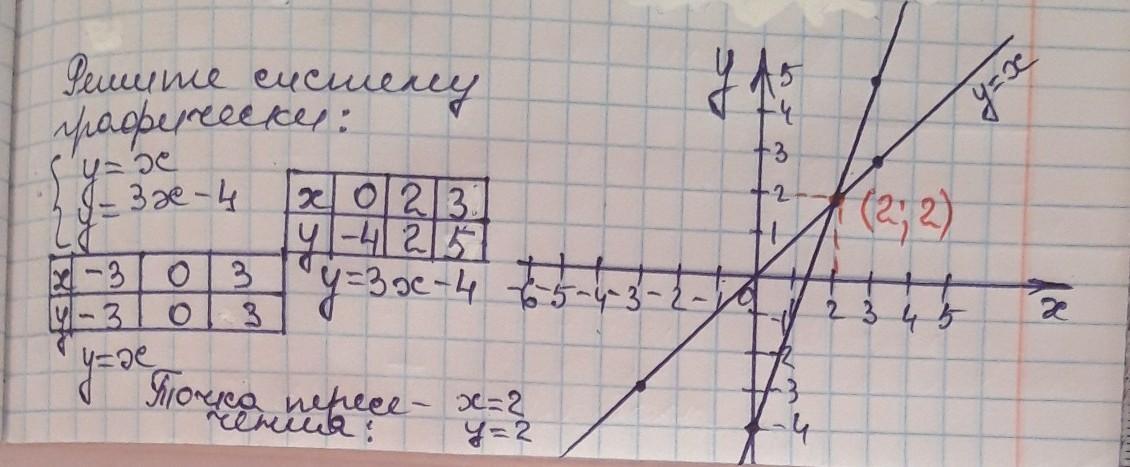 Решите систему
графически:
y=x
y=3x-4
x 0 2 3
y -4 2 5
y=3x-4
x -3 0 3
y -3 0 3
y=x
Точка пересе- x=2
чения: y=2
y
5
4
3
2
1
-6 -5 -4 -3 -2 -1 0 1 2 3 4 5
x
-1
-2
-3
-4
y=x
(2; 2)